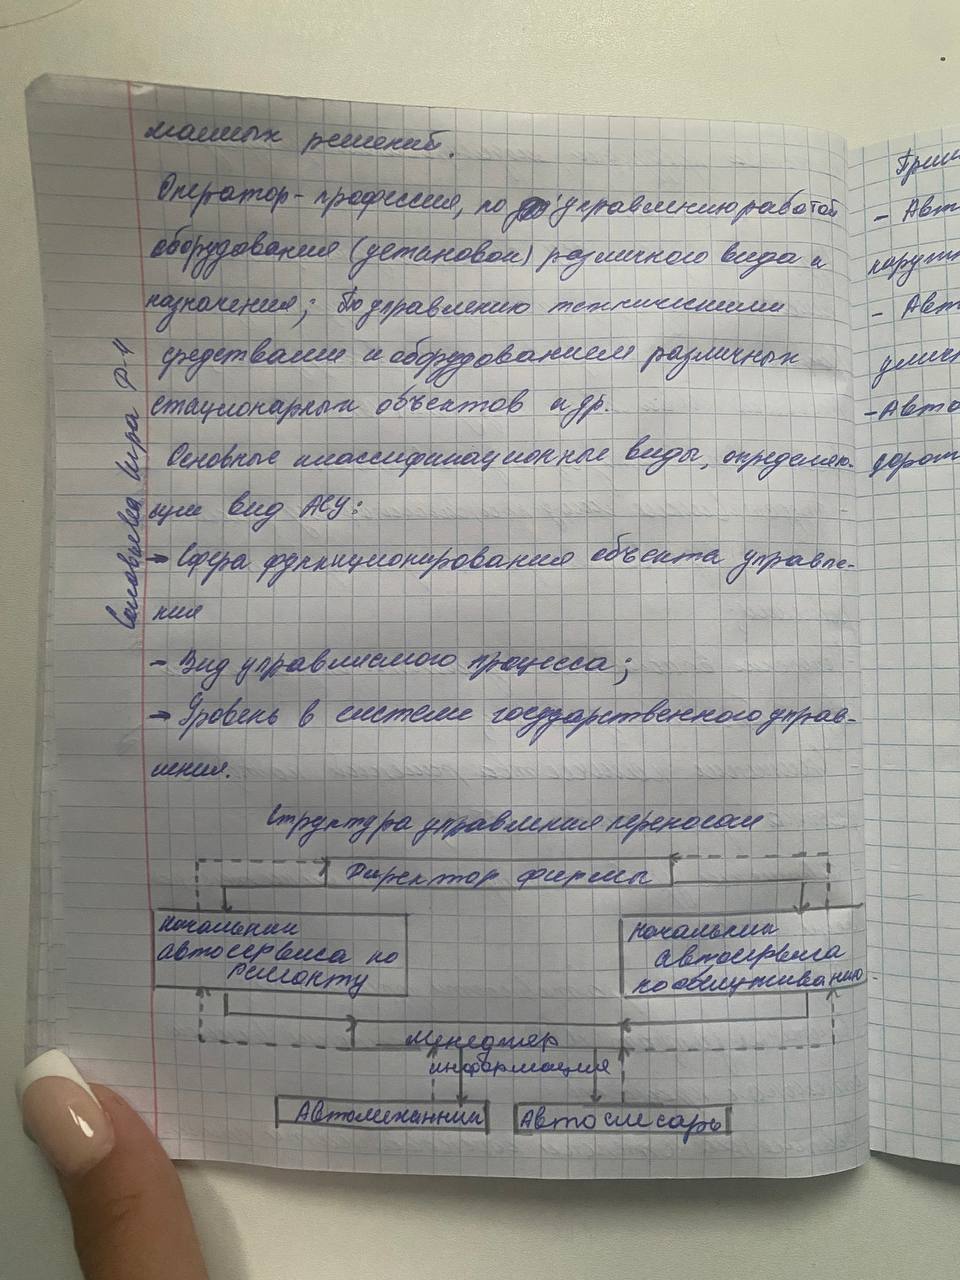 решений.
Оператор - профессия, по управлению работой
оборудования (установой) различного вида и
назначения; По управлению техническими
средствами и оборудованием различных
стационарных объектов и др.
Основные классификационные виды, определяю-
щие вид АСУ:
- Сфера функционирования объекта управле-
ния
- Вид управляемого процесса;
- Уровень в системе государственного управ-
ления.
Структура управления
Директор фирмы
Начальник
автосервиса по
Ремонту
Начальник
автосервиса
по обслуживанию
Менеджер
информация
Автомеханник
Автослесарь
Соловьева Кира
- Авт
наруж
- Авт
- Авто
дорож